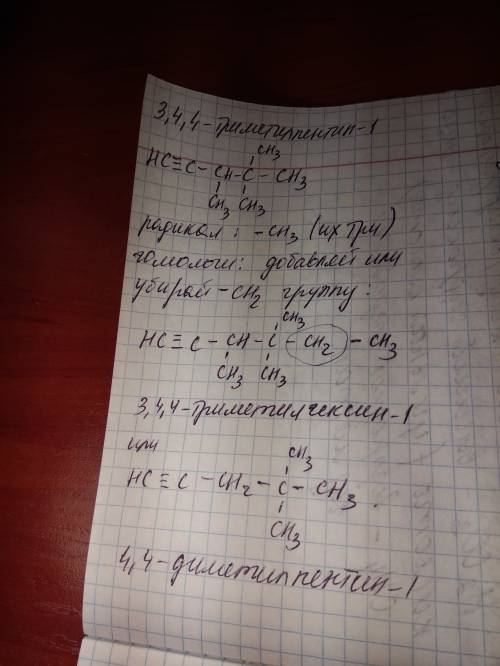 3,4,4-триметилпентин-1
CH3
HC≡C-CH-C-CH3
CH3 CH3
радикал: -CH3 (их три)
гомологи: добавляй или
убирай -CH2 группу:
CH3
HC≡C-CH-C-CH2-CH3
CH3 CH3
3,4,4-триметилгексин-1
или
CH3
HC≡C-CH2-C-CH3.
CH3
4,4-диметилпентин-1